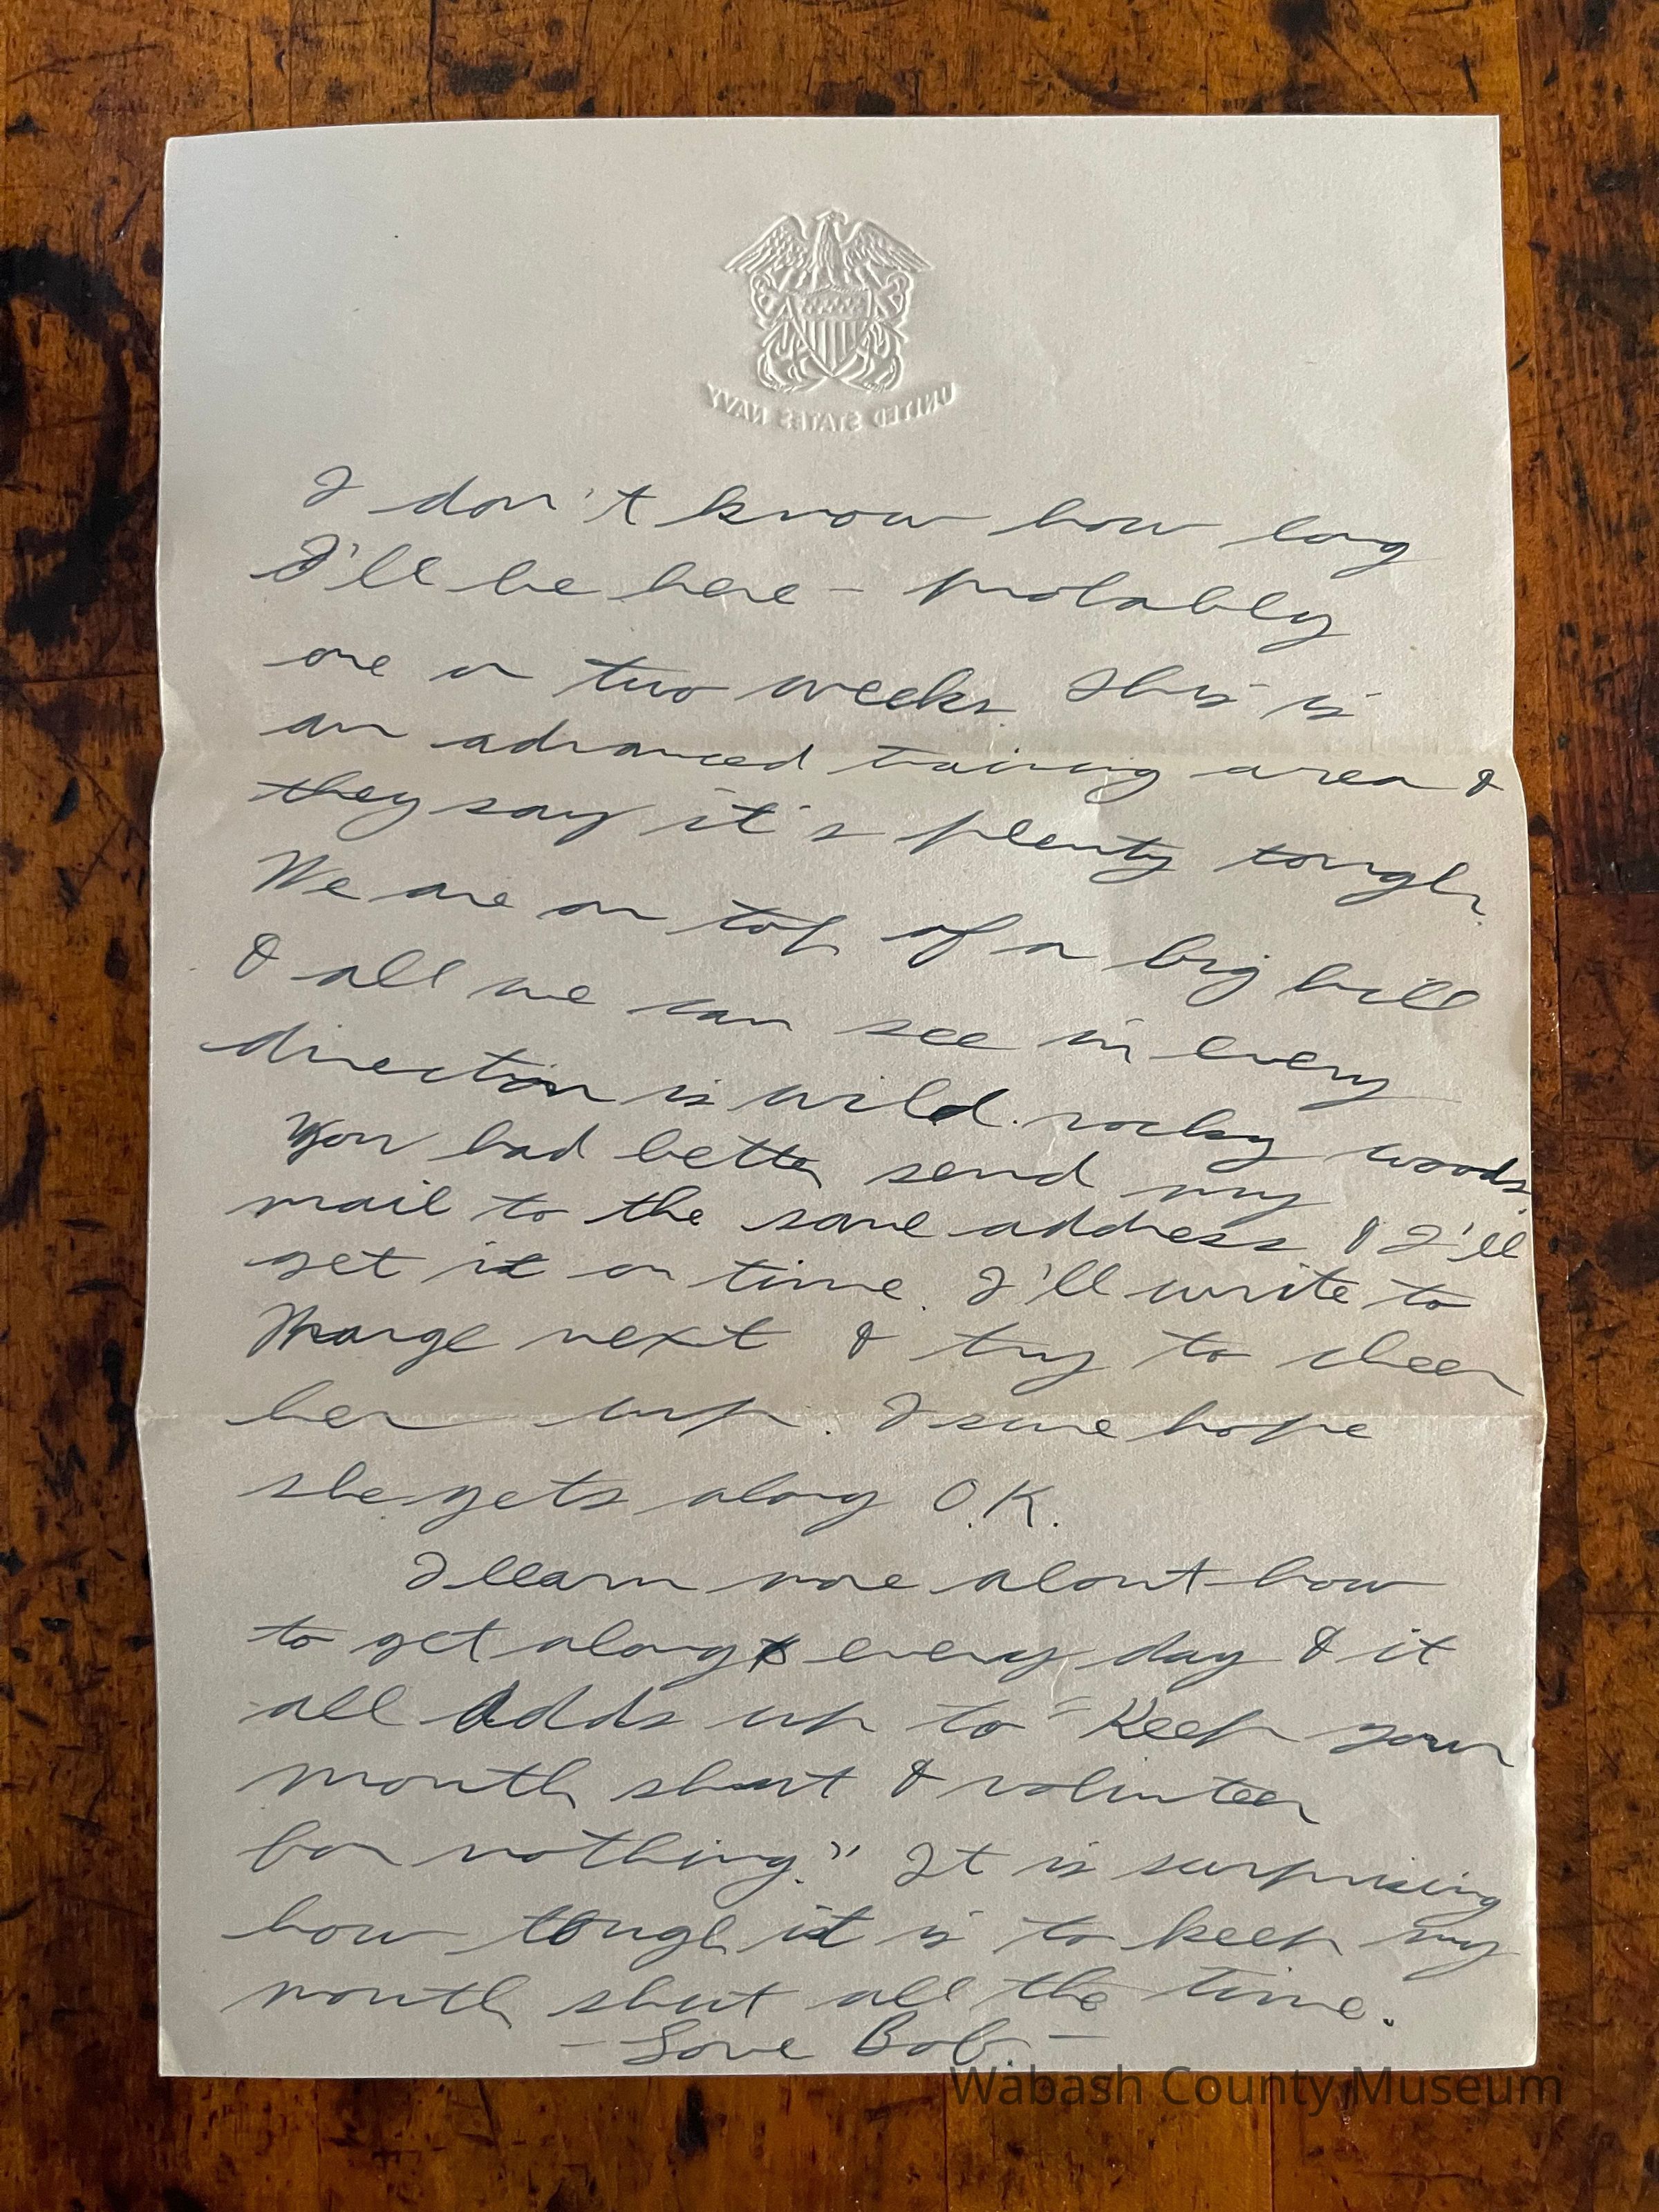 UNITED STATES NAVY
I don't know how long
I'll be here - probably
one or two weeks. This is
an advanced training area &
they say it's plenty tough.
We are on top of a big hill
& all we can see in every
direction is wild rocky woods.
You had better send my
mail to the same address & I'll
get it on time. I'll write to
Marge next & try to cheer
her up. I sure hope
she gets along O.K.
I learn more about how
to get along every day & it
all adds up to "Keep your
mouth shut & volunteer
for nothing." It is surprising
how tough it is to keep my
mouth shut all the time.
- Love Bob. -
Wabash County Museum